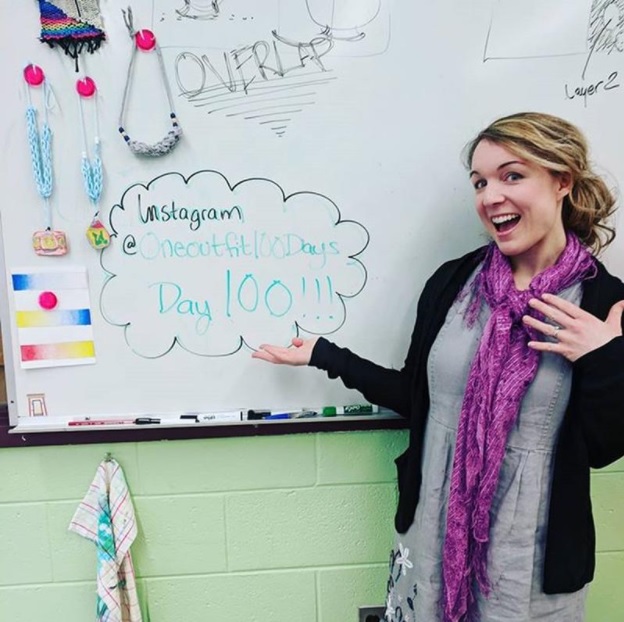 OVERLAP
Layer 2
Instagram
@Oneoutfit100Days
Day 100!!!